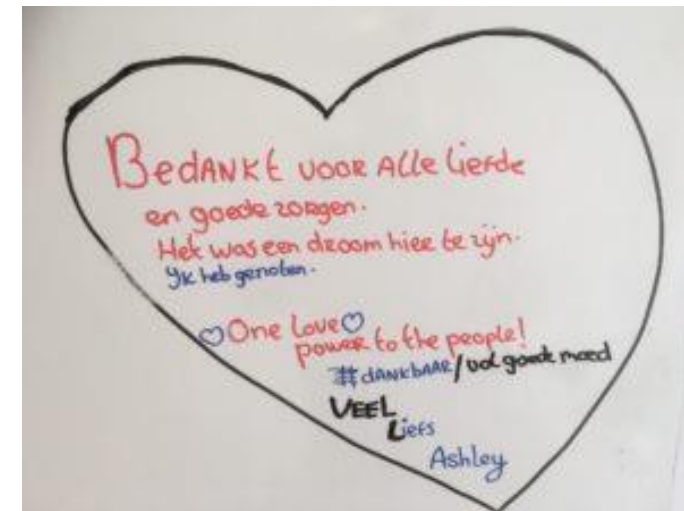 Bedankt voor alle liefde
en goede zorgen.
Het was een droom hier te zijn.
Ik heb genoten.
♡One love♡
power to the people!
#dankbaar/vol goede moed
VEEL
Liefs
Ashley